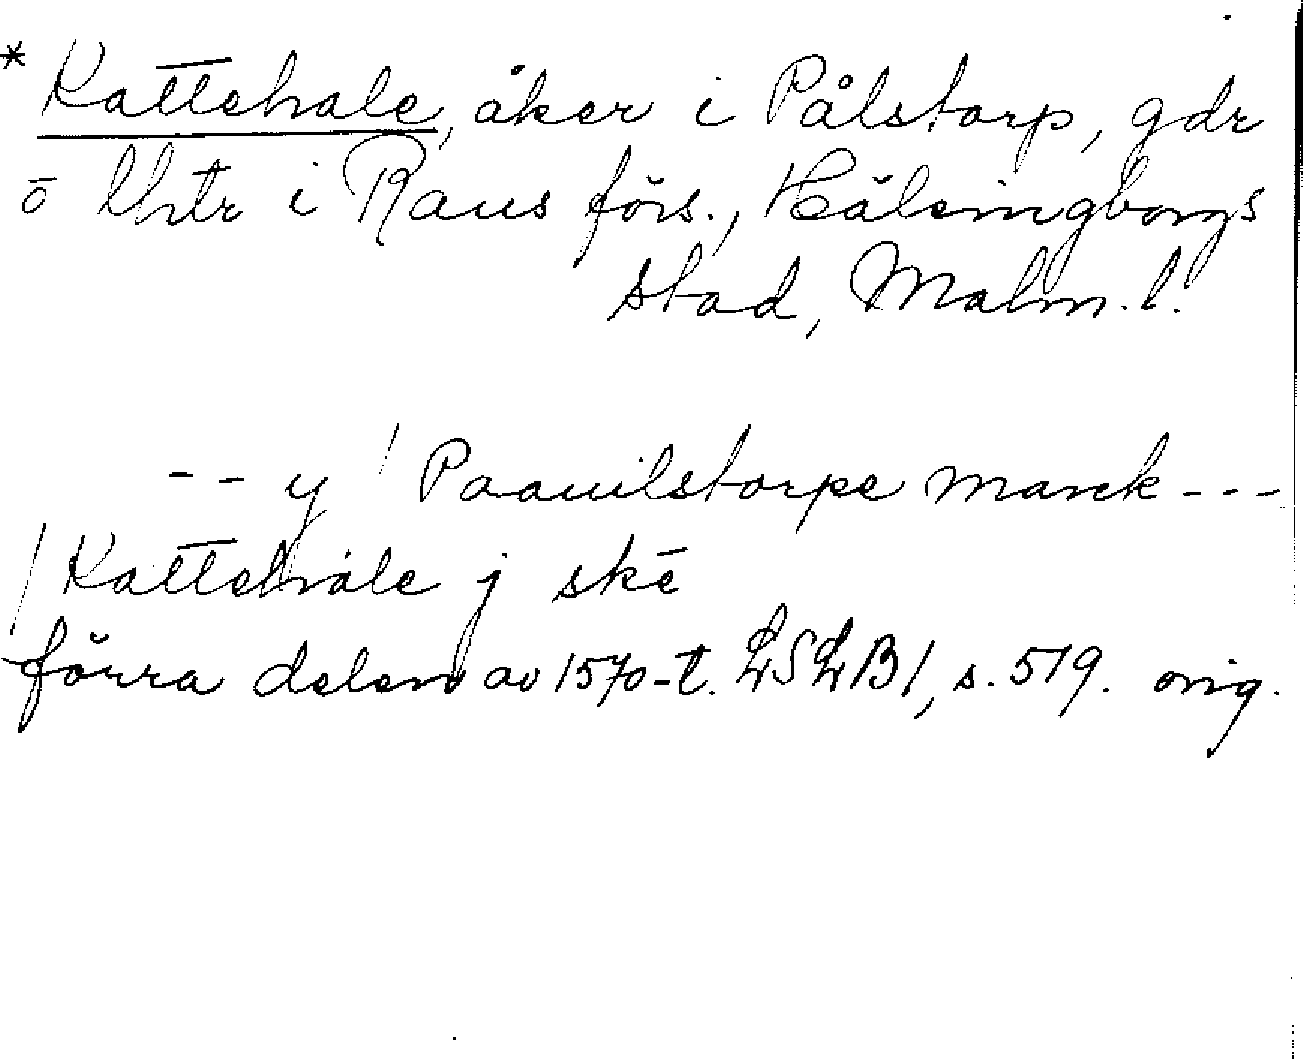 * Kattehale, åker i Pålstorp, gdr
o lhtr i Raus förs., Hälsingborgs
stad, Malm. l.
-- y Paauilstorpe marck ---
Kattehale j ske
förra delen av 1570-t. LSLB1, s. 519. orig.